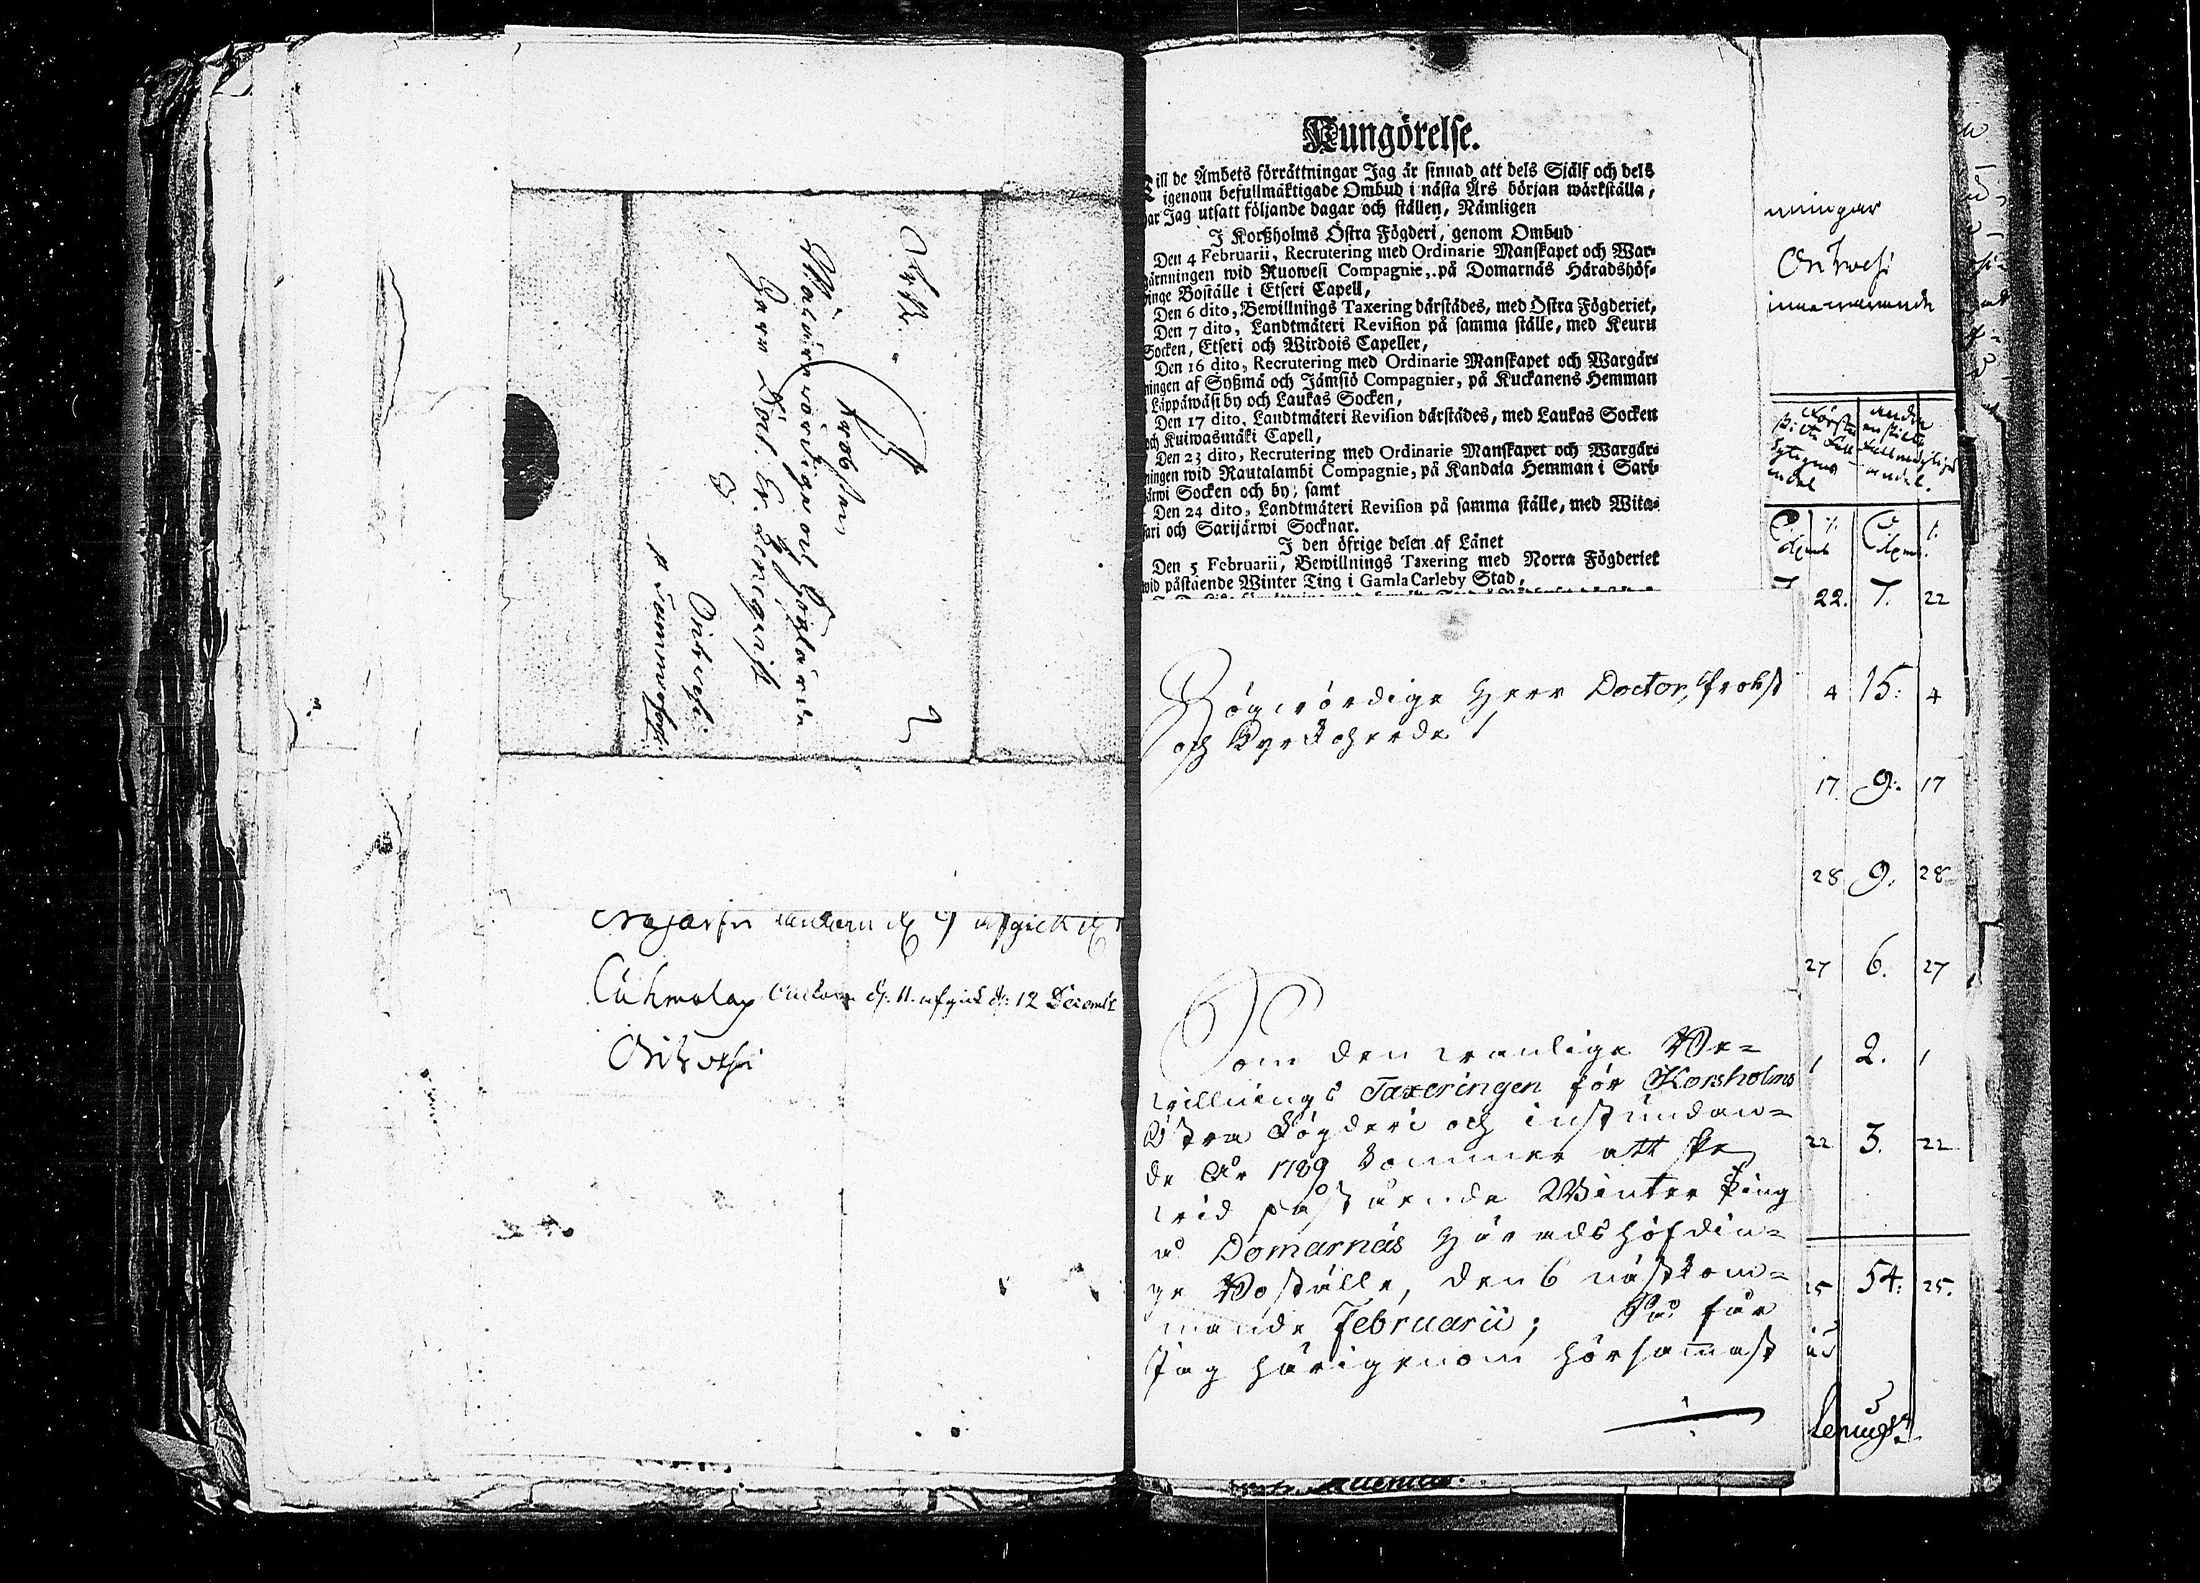 Probsten
Wälärewördige och Höglärde
Herr Doct. Er. Lencqvist
Orihvesi
Tammerfors
ankom d. 9 afgick d.
Cuhmalax ankom d. 11. afgick d. 12 Decembr
Orihvesi
Kungörelse.
Till de Ämbets förrättningar Jag är sinnad att dels Själf och dels
igenom befullmäktigade Ombud i nästa Års början wärkställa,
har Jag utsatt följande dagar och ställen, Nämligen
I Korßholms Östra Fögderi, genom Ombud
Den 4 Februarii, Recrutering med Ordinarie Manskapet och War-
gärnningen wid Ruowesi Compagnie, på Domarnäs Häradshöf-
dinge Boställe i Etseri Capell,
Den 6 dito, Bewillnings Taxering därstädes, med Östra Fögderiet,
Den 7 dito, Landtmäteri Revision på samma ställe, med Keuru
Socken, Etseri och Wirdois Capeller,
Den 16 dito, Recrutering med Ordinarie Manskapet och Wargär-
ningen af Syßmä och Jämsiö Compagnier, på Kuckanens Hemman
i Läppäwäsi by och Laukas Socken,
Den 17 dito, Landtmäteri Revision därstädes, med Laukas Socken
och Kuiwasmäki Capell,
Den 23 dito, Recrutering med Ordinarie Manskapet och Wargär-
ningen wid Rautalambi Compagnie, på Kandala Hemman i Sari-
järwi Socken och by; samt
Den 24 dito, Landtmäteri Revision på samma ställe, med Wita-
sari och Sarijärwi Socknar.
I den öfrige delen af Länet
Den 5 Februarii, Bewillnings Taxering med Norra Fögderiet
wid påstående Winter Ting i Gamla Carleby Stad,
Högwördige Herr Doctor, Probst
och Kyrkoherde!
Som den wanlige Be-
willnings Taxeringen för Korsholms
Östra Fögderi och instundan-
de År 1789 kommer att ske
wid påstående Winter Ting
å Domarnäs Häradshöfdin-
ge Boställe, den 6 nästkom-
mande Februarii; Så får
Jag härigenom hörsammast
ningar
Orihvesi
innewarande
22. 7. 22
4 15: 4
17. 9. 17
28 9. 28
27 6. 27
1 2. 1
22 3. 22
25 54: 25.